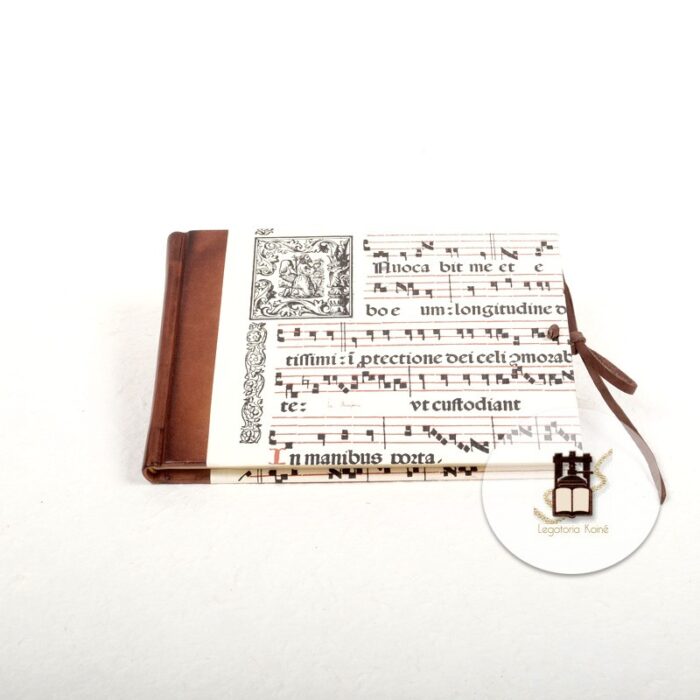 Nuoca bit me et e
bo e um: longitudine d
tissimi: i ꝓtectione dei celi ꝯmorab
te: vt custodiant
In manibus porta.
Legatoria Koinè